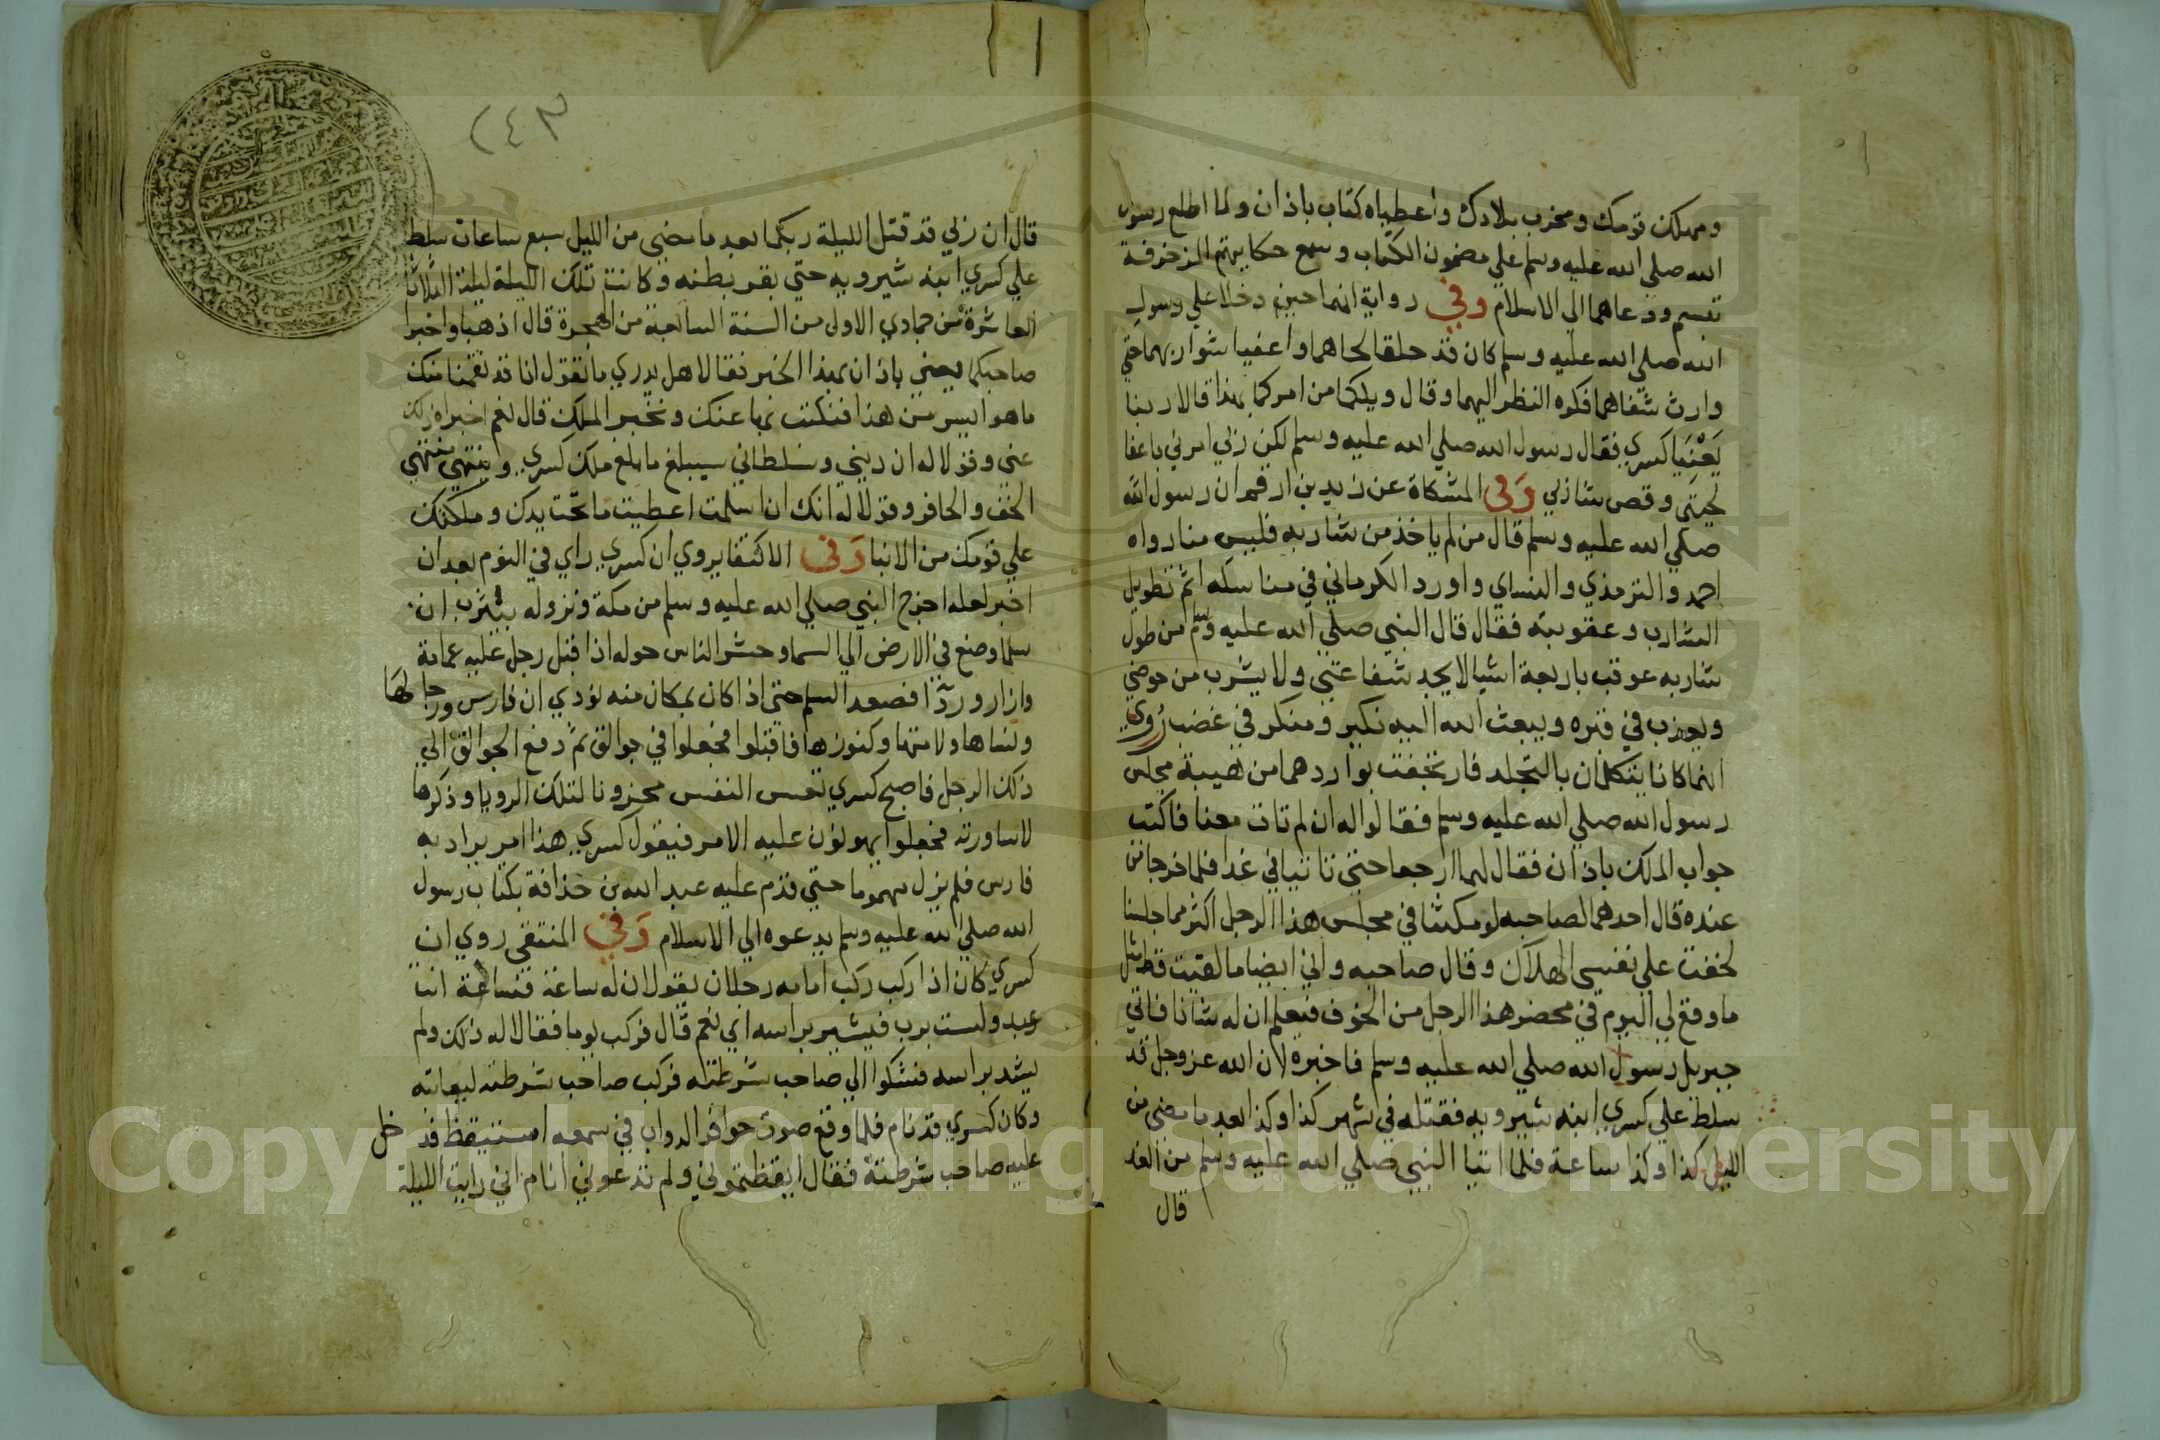 ومهلك قومك ومخرب بلادك واعطياه كتاب باذان ولما اطلع رسول
الله صلي الله عليه وسلم علي مضمون الكتاب وسمع حكايتهم المزخرفة
تبسم ودعاهما الي الاسلام وفي رواية انهما حين دخلا علي رسول
الله صلي الله عليه وسلم كان قد حلقا لحاهما واعفيا شواربهما حتي
وارت شفاهما فكره النظر اليهما وقال ويلكما من امركما بهذا قالا ربنا
يَعْنَيا كسري فقال رسول الله صلي الله عليه وسلم لكن ربي امرني باعفا
لحيتي وقص شاربي وَفي المشكاة عن زيد بن ارقم ان رسول الله
صلي الله عليه وسلم قال من لم ياخذ من شاربه فليس منا رواه
احمد والترمذي والنساي واورد الكرماني في مناسكه اثم تطويل
الشارب وعقوبته فقال قال النبي صلي الله عليه وسلم من طول
شاربه عوقب باربعة اشيا لا يجد شفاعتي ولا يشرب من حوضي
ويعذب في قبره ويبعث الله اليه نكير ومنكر في غضب رُوي
انهما كانا يتكلمان بالتجلد فارتجفت بوادرهما من هيبة مجلس
رسول الله صلي الله عليه وسلم فقالوا له ان لم تات معنا فاكتب
جواب الملك باذان فقال لهما ارجعا حتي تاتياني غدا فلما خرجا من
عنده قال احدهما لصاحبه لو مكثنا في مجلس هذا الرجل اكثر مما جلسنا
لخفت علي نفسي الهلاك وقال صاحبه واني ايضا ما لقيت قط مثل
ما وقع لي اليوم في محضر هذا الرجل من الخوف فيعلم ان له شانا فاتي
جبريل رسول الله صلي الله عليه وسلم فاخبره لان الله عز وجل قد
سلط علي كسري ابنه شيرويه فقتله في شهر كذا وكذا بعد ما مضي من
الليل كذا وكذا ساعة فلما اتيا النبي صلي الله عليه وسلم من الغد
قال
٢٤٣
قال ان ربي قد قتل الليلة ربكما بعد ما مضي من الليل سبع ساعات سلط
علي كسري ابنه شيرويه حتي بقر بطنه وكانت تلك الليلة ليلة الثلاثا
العاشرة من جمادي الاول من السنة السابعة من الهجرة قال اذهبا واخبرا
صاحبكما يعني باذان بهذا الخبر فقالا هل تدري ما تقول انا قد نقمنا منك
ما هو ايسر من هذا فنكتب بها عنك ونخبر الملك قال نعم اخبراه ذلك
عني وقولا له ان ديني وسلطاني سيبلغ ما بلغ ملك كسري وينتهي منتهي
الخف والحافر وقولا له انك ان اسلمت اعطيت ما تحت يدك وملكتك
علي قومك من الابنا وَفي الاكتفا يروي ان كسري راي في النوم بعد ان
اخبر لعله اخرج النبي صلي الله عليه وسلم من مكة ونزوله بيثرب ان
سلما وضع في الارض الي السما وحشر الناس حوله اذ اقبل رجل عليه عمامة
وازار وردآ فصعد السلم حتي اذا كان بمكان منه نودي ان فارس ورجالها
ونساها ولامتها وكنوزها فاقبلوا فجعلوا في جوالق ثم دفع الجوالق الي
ذلك الرجل فاصبح كسري تعس النفس محزونا لتلك الرويا وذكرها
لاساورته فجعلوا يهونون عليه الامر فيقول كسري هذا امر يراد به
فارس فلم يزل مهموما حتي قدم عليه عبد الله بن حذافة بكتاب رسول
الله صلي الله عليه وسلم يدعوه الي الاسلام وَفي المنتقي روي ان
كسري كان اذا ركب ركب امامه رجلان يقولان له ساعة فساعة انت
عبد ولست برب فيشير براسه اي نعم قال فركب يوما فقالا له ذلك ولم
يشد براسه فشكوا الي صاحب شرطته فركب صاحب شرطته ليعاتبه
وكان كسري قد نام فلما وقع صوت حوافر الدواب في سمعه استيقظ فدخل
عليه صاحب شرطته فقال ايقظتموني ولم تدعوني انام اني رايت الليلة
Copyright © King Saud University